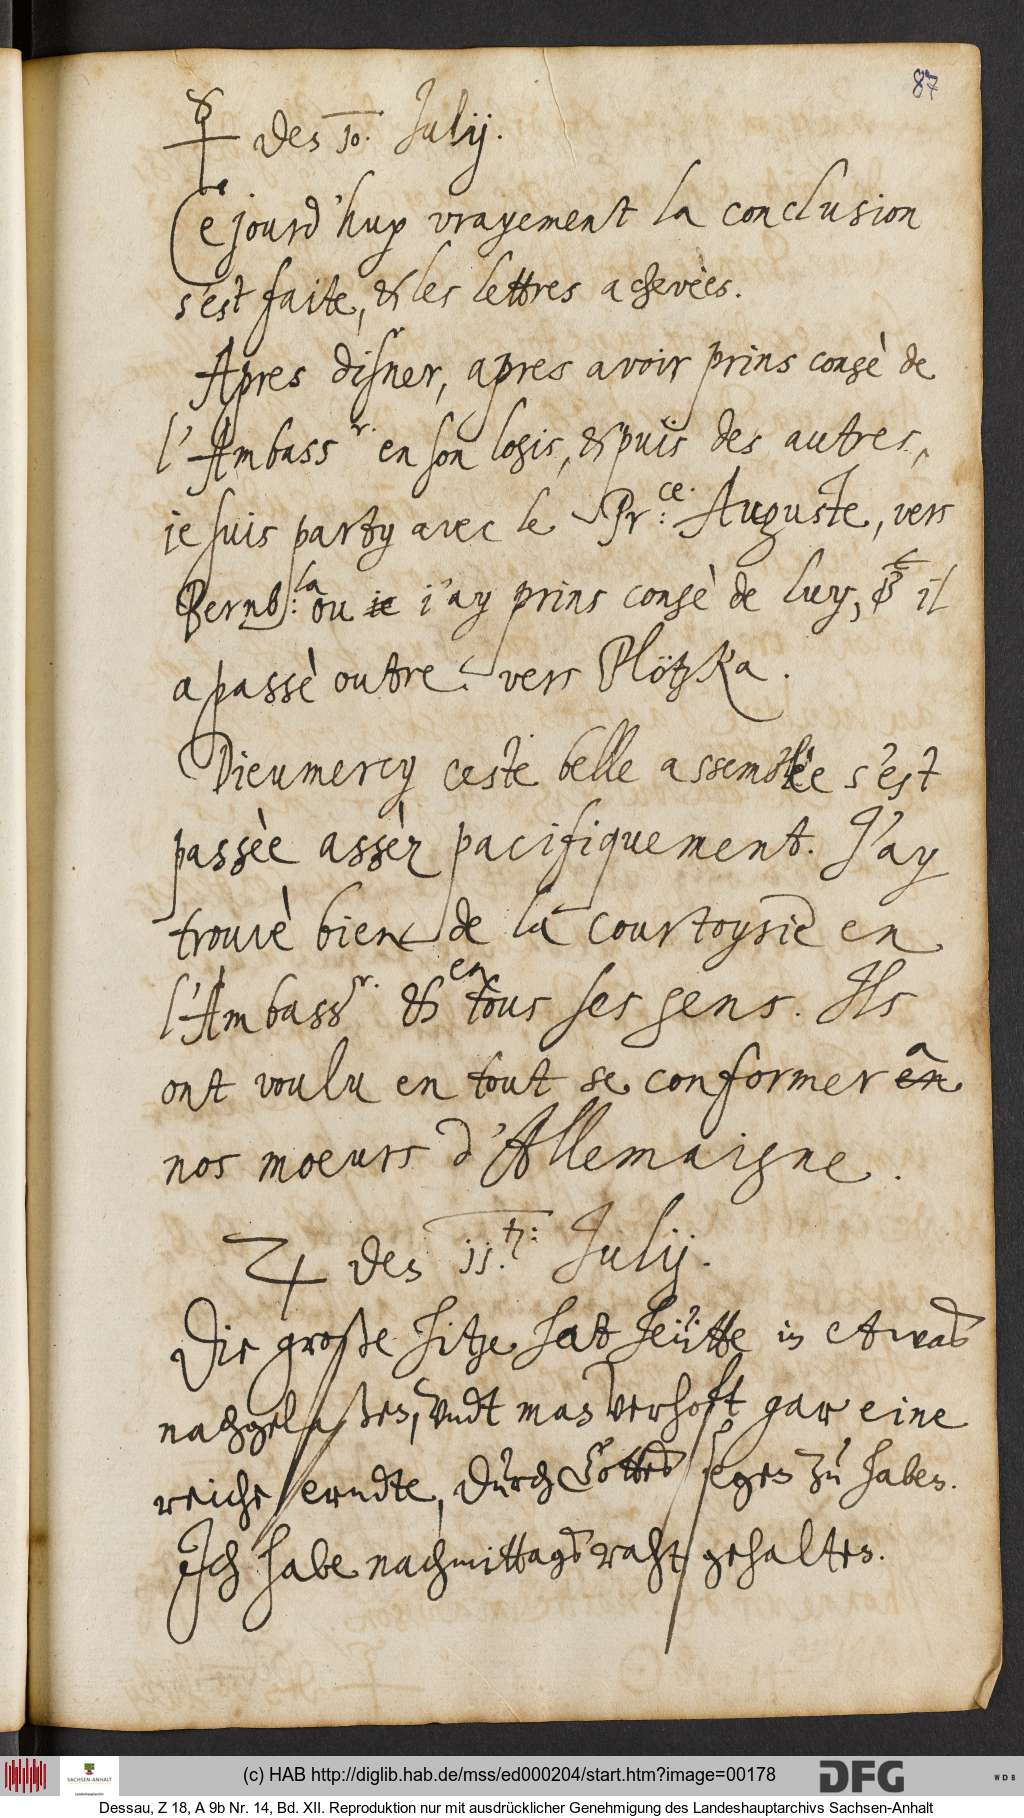 87
☿ des 10. Julij.
Ce jourd'huy vrayement la conclusion
s'est faite, & les lettres achevèes.
Apres disner, apres avoir prins congè de
l'Ambass.r en son logis, & puis des autres,
je suis party avec le Pr:ce. Auguste, vers
Bernb: la ou je i'ay prins congè de luy, & il
a passè outre vers Plötzka.
Dieumercy ceste belle assemblèe s'est
passèe assèz pacifiquement. J'ay
trouvè bien de la courtoysie en
l'Ambass.r & en tous ses gens. Ils
ont voulu en tout se conformer en a
nos moeurs d'Allemaigne.
♃ des 11.ten: Julij.
Die große hitze hat heütte in etwaß
nachgelaßen, vndt man verhoft gar eine
reiche erndte, durch Gottes segen zu haben.
Ich habe nachmittags raht gehalten.
(c) HAB http://diglib.hab.de/mss/ed000204/start.htm?image=00178
SACHSEN-ANHALT
DFG
WDB
Dessau, Z 18, A 9b Nr. 14, Bd. XII. Reproduktion nur mit ausdrücklicher Genehmigung des Landeshauptarchivs Sachsen-Anhalt